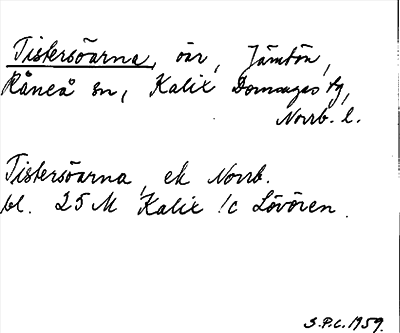 Tistersöarna, öar, Jämtön,
Råneå sn, Kalix Domsagas tg,
Norrb. l.
Tistersöarna, ek Norrb.
bl. 25 M Kalix !c Lövören.
S.P.C. 1959.